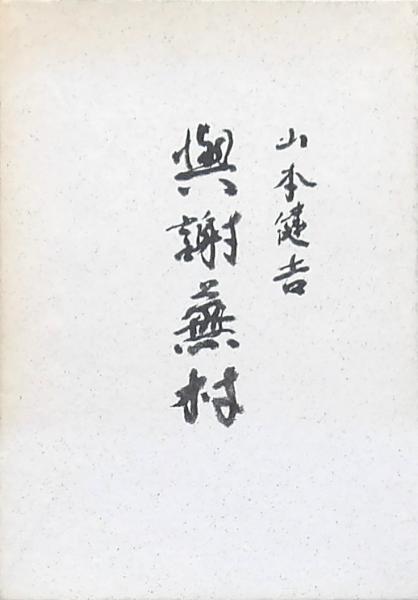 山本健吉
與謝蕪村